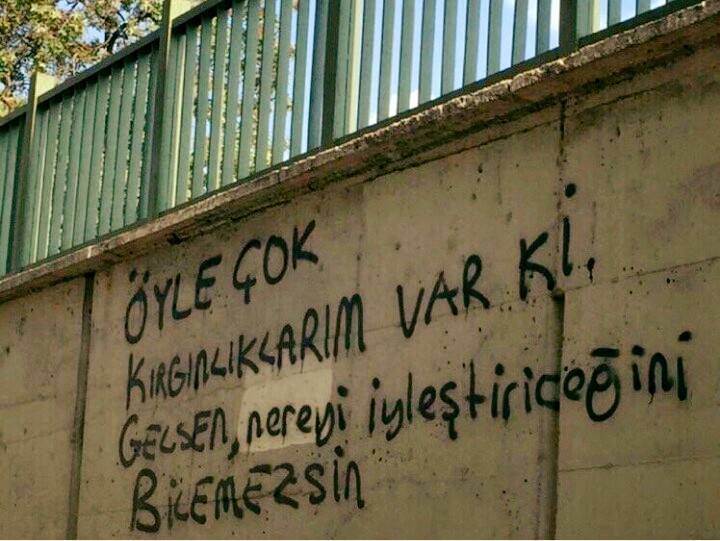 ÖYLE ÇOK
KIRGINLIKLARIM VAR Kİ,
GELSEN, nereyi iyleştiriceğini
BİLEMEZSİN